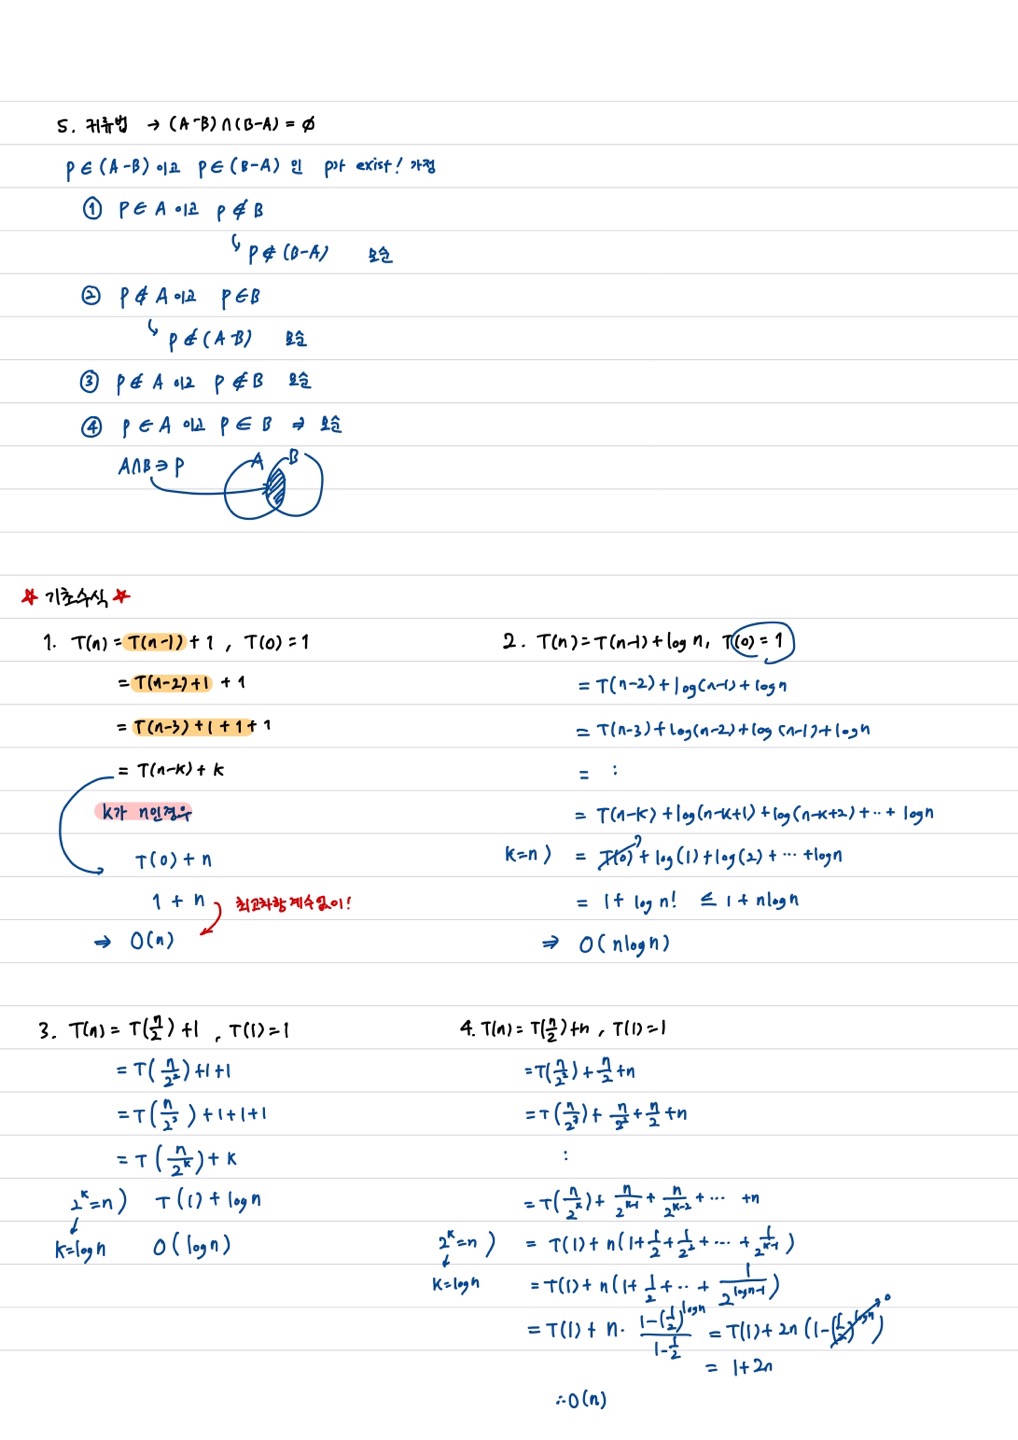 5. 귀류법 → (A-B)∩(B-A) = ∅
P∈(A-B) 이고 P∈(B-A) 인 P가 exist! 가정
① P∈A 이고 P∉B
↳ P∉(B-A) 모순
② P∉A 이고 P∈B
↳ P∉(A-B) 모순
③ P∉A 이고 P∉B 모순
④ P∈A 이고 P∈B ⇒ 모순
A∩B∋P A B
★ 기초수식 ★
1. T(n) = T(n-1) + 1 , T(0) = 1
= T(n-2)+1 + 1
= T(n-3)+1+1+1
= T(n-k) + k
k가 n인경우
T(0) + n
1 + n 최고차항 계수없이!
⇒ O(n)
2. T(n) = T(n-1) + log n, T(0) = 1
= T(n-2) + log(n-1) + logn
= T(n-3) + log(n-2) + log(n-1) + logn
= :
= T(n-k) + log(n-k+1) + log(n-k+2) + ‥ + logn
k=n) = T(0) + log(1) + log(2) + ⋯ + logn
= 1 + log n! ≤ 1 + nlogn
⇒ O(nlogn)
3. T(n) = T(n/2) + 1 , T(1) = 1
= T(n/2²) + 1 + 1
= T(n/2³) + 1 + 1 + 1
= T(n/2ᵏ) + k
2ᵏ=n) T(1) + logn
↓
k=logn O(logn)
4. T(n) = T(n/2) + n , T(1) = 1
= T(n/2²) + n/2 + n
= T(n/2³) + n/2² + n/2 + n
:
= T(n/2ᵏ) + n/2ᵏ⁻¹ + n/2ᵏ⁻² + ⋯ + n
2ᵏ=n) = T(1) + n(1 + 1/2 + 1/2² + ⋯ + 1/2ᵏ⁻¹)
↓
k=logn = T(1) + n(1 + 1/2 + ‥ + 1/2^(logn-1))
= T(1) + n · (1-(1/2)^logn)/(1-1/2) = T(1) + 2n (1-(1/2)^logn) 0
= 1+2n
∴ O(n)